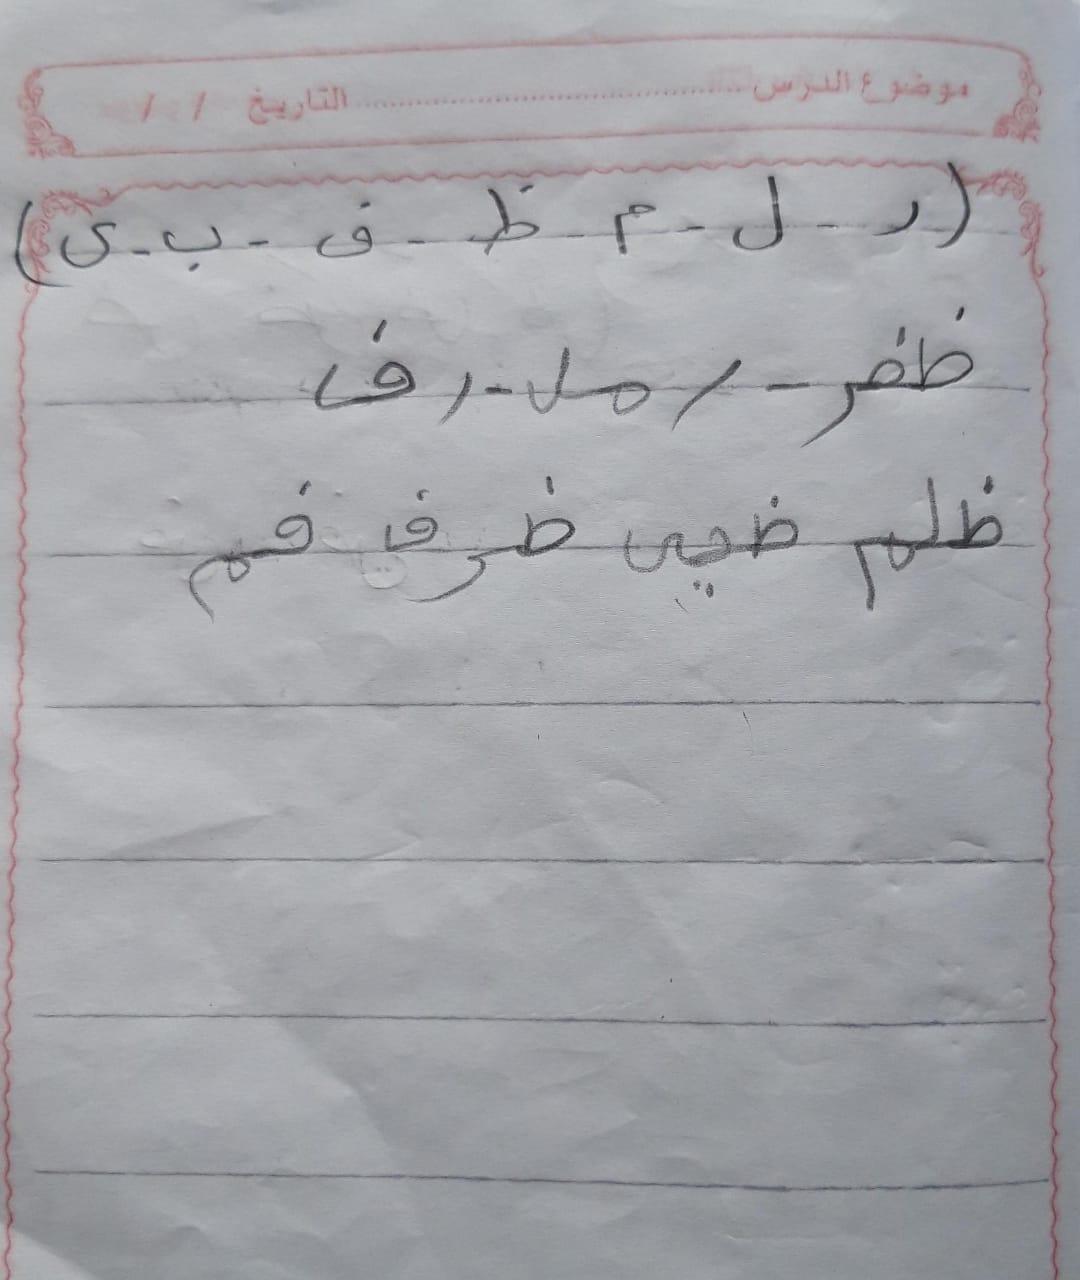 موضوع الدرس ........................ التاريخ / /
(ر - ل - م - ظ - ف - ب - ى)
ظفر - رمل - رف
ظلم ظبي ظرف فم